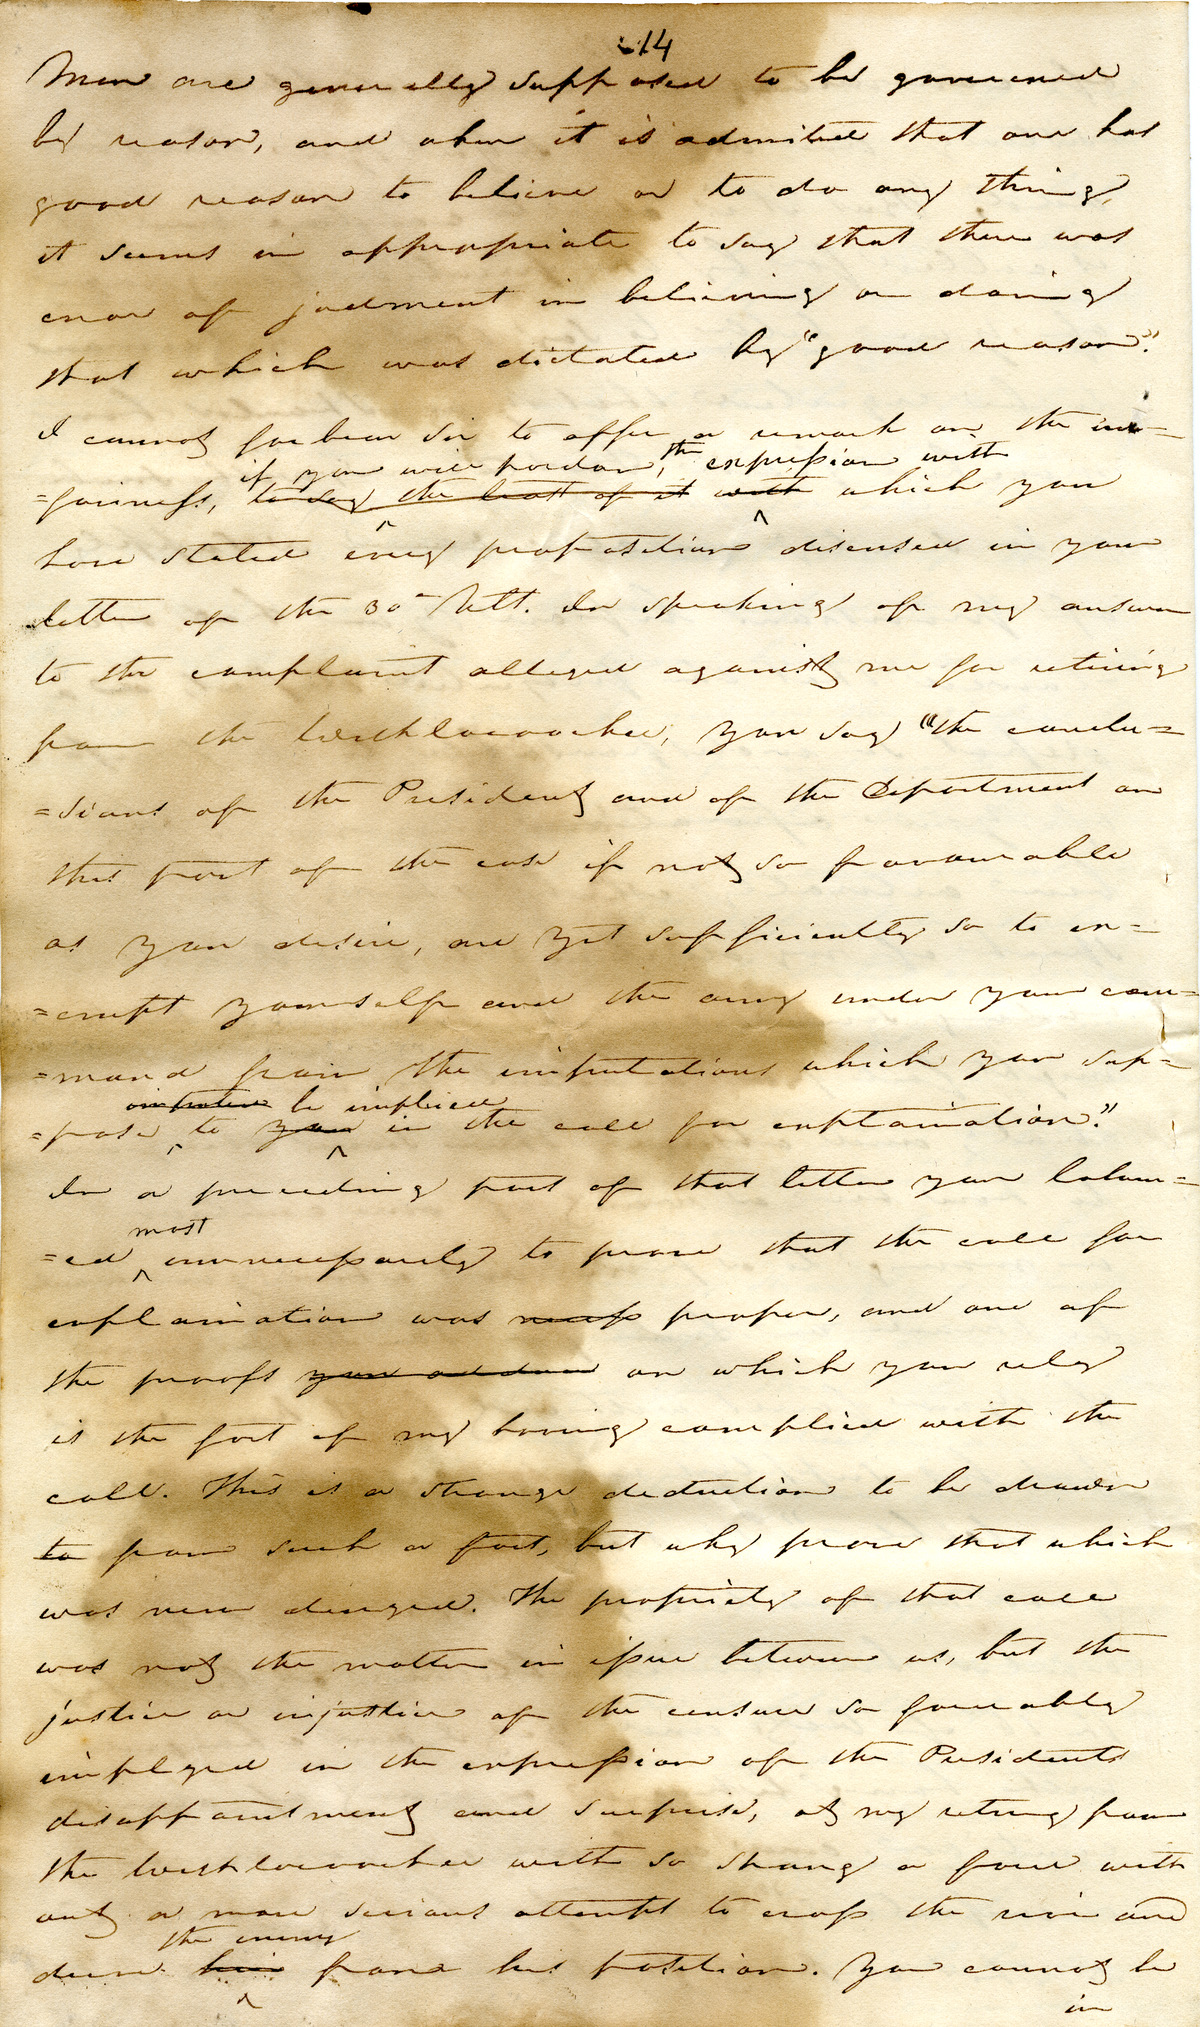 14
Men are generally supposed to be governed
by reason, and when it is admitted that one has
good reason to believe or to do any thing,
it seems in appropriate to say that there was
error of judment in believing or doing
that which was dictated by "good reason".
I cannot forbear Sir to offer a remark on the un=
if you will pardon, the expression with
=fairness, to say the least of it with which you
have stated every proposition discussed in your
letter of the 30th Ult. In speaking of my answer
to the complaint alleged against me for retiring
from the Withlacoochee, you say "the conclu=
=sions of the President and of the Department on
this part of the case if not so favourable
as you desire, are yet sufficiently so to ex=
=empt yourself and the army under your com=
=mand from the imputations which you sup=
be implied
=pose to you in the call for explaination."
In a preceeding part of that letter you labour=
most
=ed unnecessarily to prove that the call for
explaination was necess proper, and one of
the proofs you adduce on which you rely
is the fact of my having complied with the
call. This is a strange deduction to be drawn
to from such a fact, but why prove that which
was never denyed. The propriety of that call
was not the matter in issue between us, but the
justice or injustice of the censure so forceably
implyed in the expression of the Presidents
disappointment and surprise, at my retiring from
the Withlacoochee with so strong a force with
out a more serious attempt to cross the river and
the enemy
drive him from his position. You cannot be
in